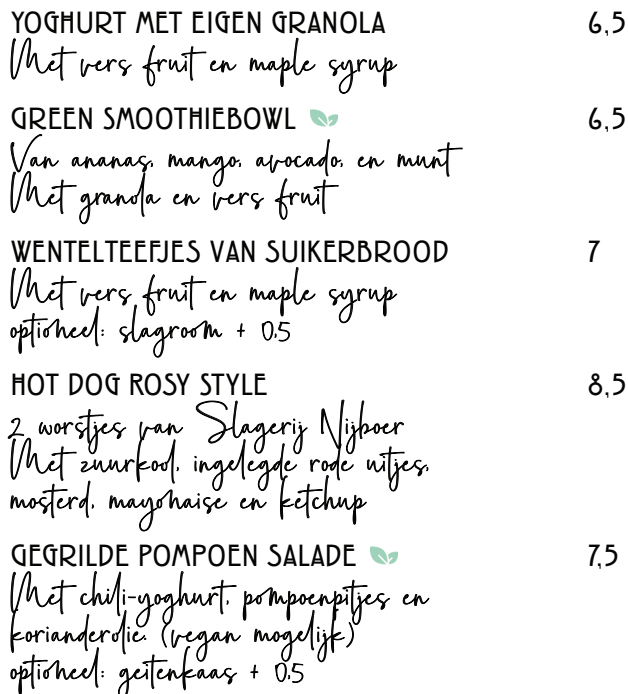 YOGHURT MET EIGEN GRANOLA 6,5
Met vers fruit en maple syrup
GREEN SMOOTHIEBOWL 6,5
Van ananas, mango, avocado, en munt
Met granola en vers fruit
WENTELTEEFJES VAN SUIKERBROOD 7
Met vers fruit en maple syrup
optioneel: slagroom + 0,5
HOT DOG ROSY STYLE 8,5
2 worstjes van Slagerij Nijboer
Met zuurkool, ingelegde rode uitjes,
mosterd, mayonaise en ketchup
GEGRILDE POMPOEN SALADE 7,5
Met chili-yoghurt, pompoenpitjes en
korianderolie. (vegan mogelijk)
optioneel: geitenkaas + 0,5